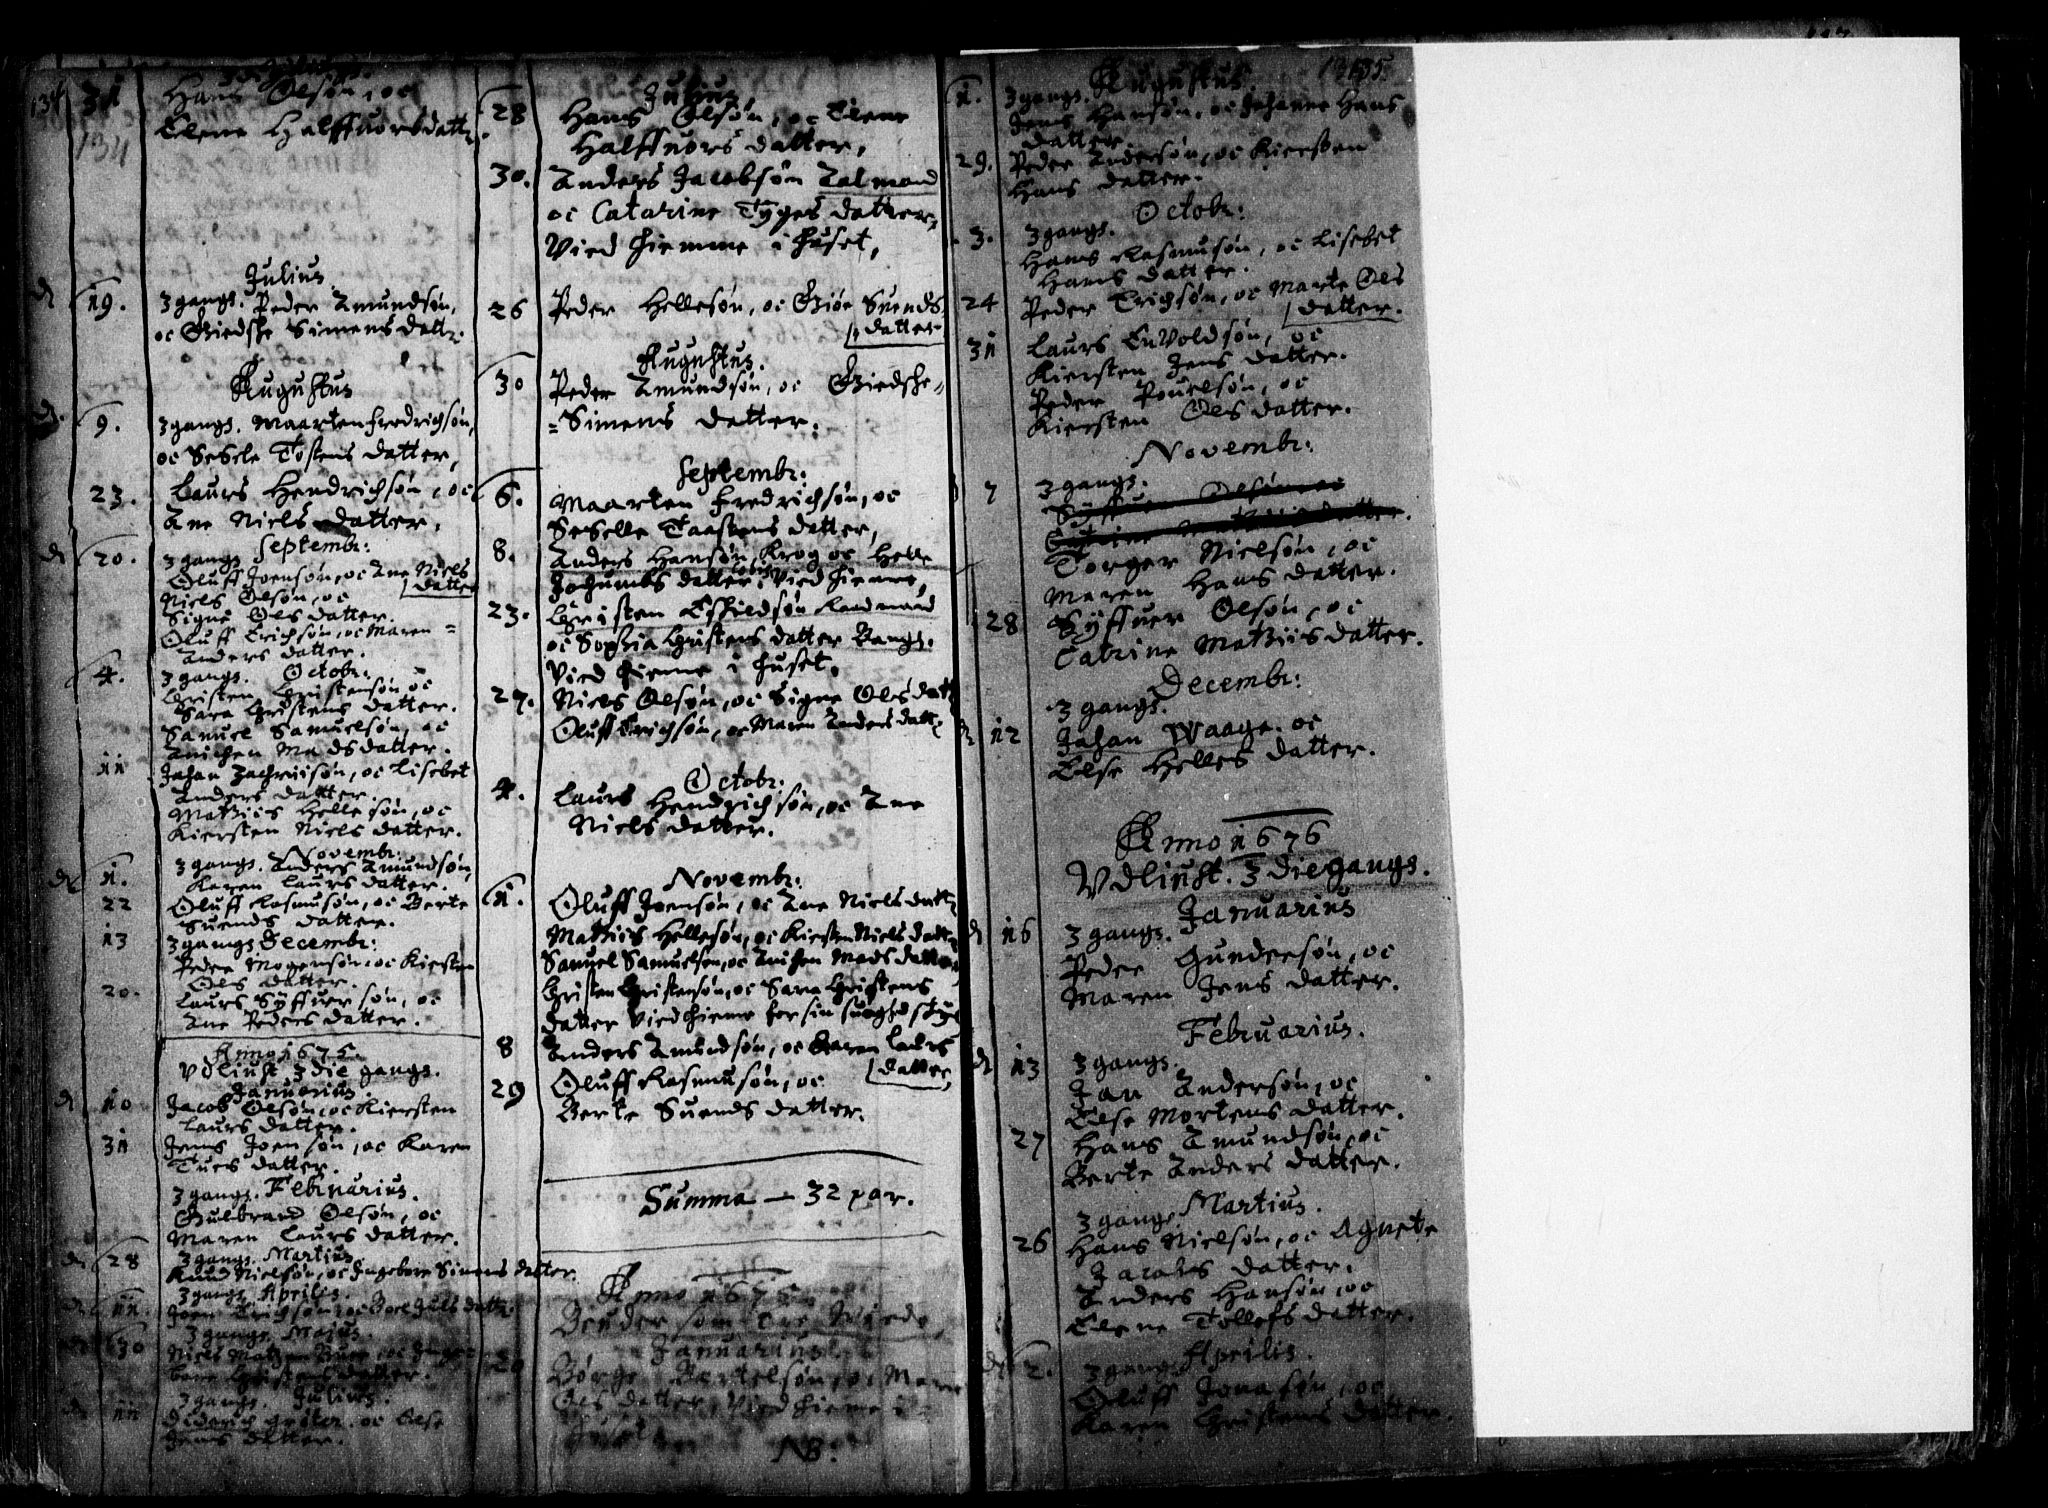 134
31
Hans Olsøn, oc
Elene Halffuorsdattr.
134
Julius
19. 3 gangs. Peder Amundsøn,
oc Giedske Simens dattr.
Augustus
9. 3 gangs. Maarten Fredrichsøn,
oc Sesele Tostens datter,
23. Laurs Hendrichsøn, oc
Ane Niels datter,
Septembr:
20. 3 gangs
Oluff Joensøn, oc Ane Niels
datter
Niels Olsøn, oc
Signe Ols datter.
Oluff Erichsøn, oc Maren =
Anders datter.
4. 3 gangs. Octobr:
Christen Christensøn oc
Sara Christens datter.
Samuel Samuelsøn, oc
Anichen Madsdatter.
11 Johan Zachriisøn, oc Lisebet
Anders datter.
Mathiis Hellesøn, oc
Kiersten Niels datter.
Novembr:
1. 3 gangs. Anders Amundsøn,
Karen Laurs datter.
22 Oluff Rasmusøn, oc Berte
Suends datter.
13 3 gangs Decembr:
Peder Mogensøn, oc Kiersten
Ols datter.
20. Laurs Syffuersøn, oc
Ane Peders datter.
Anno 1675.
Vdliust 3die gangs.
Januarius.
10 Jacob Olsøn, oc Kiersten
Laurs datter.
31 Jens Joensøn, oc Karen
Tues datter.
3 gangs. Februarius.
Gulbrand Olsøn, oc
Maren Laurs datter.
3 gangs. Martius
28 Knud Nielsøn, oc Ingebore Simens datter.
3 gangs Aprilis.
11. Joen Erichsøn, oc
3 gangs. Majus.
30 Niels
bore Christens datter.
3 gangs. Julius.
11 Diderich oc Else
Jens datter.
Julius
28 Hans Olsøn, oc Elene
Halffuors datter,
30. Anders Jacobsøn Talmand
oc Catarine Tyges datter,
Vied hiemme i huset,
26 Peder Hellesøn, oc Giøe Suends
datter
Augustus.
30 Peder Amundsøn, oc Giedske=
=Simens datter.
Septembr:
6. Maarten Fredrichsøn, oc
Seselle Taastens datter,
8. Anders Hansøn Krog oc Helle
Jochumbs datter, Vied hieme,
23. Christen Eskildsøn Raadmand
oc Sophia Christens datter Bangs.
Vied hieme i huset,
27. Niels Olsøn, oc Signe Ols datt
Oluff Erichsøn, oc Maren Anders dattr
Octobr:
4. Laurs Hendrichsøn, oc Ane
Niels datter.
Novembr:
1. Oluff Joensøn, oc Ane Niels dattr
Mathiis Hellesøn, oc Kiersten Niels datt
Samuel Samuelsøn, oc Anichen Mads datter
Christen Christensøn, oc Sara Christens
datter Vied hieme for sin suaghed
8 Anders Amundsøn, oc Karen Laurs
datter,
29 Oluff Rasmusøn, oc
Berte Suends datter.
Summa — 32 par.
Anno 1675.
som ere Viede,
Januarius.
20 Børge Bertelsøn, oc Maren
Ols datter, Vied hieme i
huset
NB.
135
Augustus.
1. 3 gangs.
Jens Hansøn, oc Johanne Hans
datter.
29. Peder Andersøn, oc Kiersten
Hans datter.
Octobr:
3. 3 gangs.
Hans Rasmusøn, oc Lisebet
Hans datter.
24 Peder Erichsøn, oc Marte Ols
datter.
31 Laurs Envoldsøn, oc
Kiersten Jens datter.
Peder Pouelsøn, oc
Kiersten Ols datter.
Novembr:
7 3 gangs.
Syffuer Olsøn, oc
Catrine Mathiis datter.
Torger Nielsøn, oc
Maren Hans datter.
28 Syffuer Olsøn, oc
Catrine Mathiis datter.
Decembr:
3 gangs.
12 Johan Waage. oc
Else Helles datter.
Anno 1676
Vdliust. 3 die gangs.
Januarius
16 3 gangs.
Peder Gundersøn, oc
Maren Jens datter.
Februarius.
13 3 gangs.
Jan Andersøn, oc
Else Mortens datter.
27 Hans Amundsøn, oc
Berte Anders datter.
3 gangs. Martius.
26 Hans Nielsøn, oc Agnete
Jacobs datter.
Anders Hansøn, oc
Elene Tollefs datter.
3 gangs Aprilis.
2. Oluff Jonasøn, oc
Karen Christens datter.